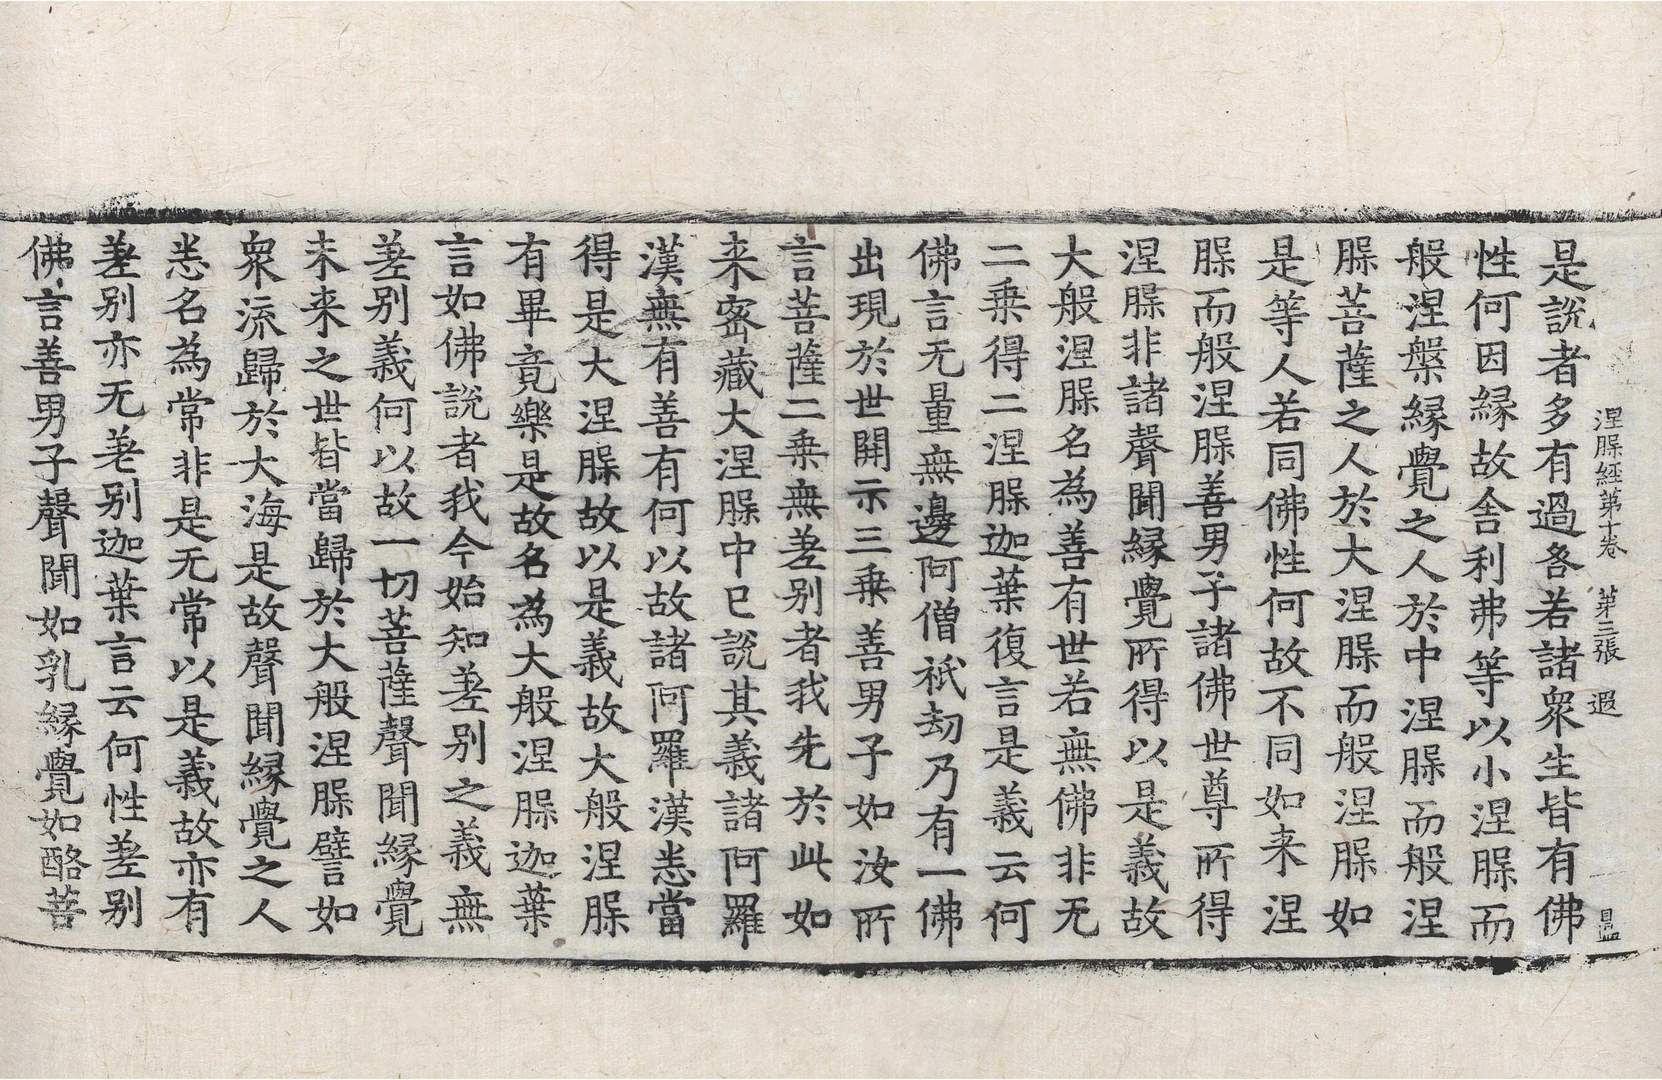 涅槃經第十卷 第三張 遐 昷
是說者多有過咎若諸衆生皆有佛
性何因縁故舎利弗等以小涅槃而
般涅槃縁覺之人於中涅槃而般涅
槃菩薩之人於大涅槃而般涅槃如
是等人若同佛性何故不同如来涅
槃而般涅槃善男子諸佛世尊所得
涅槃非諸聲聞縁覺所得以是義故
大般涅槃名為善有世若無佛非无
二乗得二涅槃迦葉復言是義云何
佛言无量無邊阿僧祇劫乃有一佛
出現於世開示三乗善男子如汝所
言菩薩二乗無差别者我先於此如
来宻藏大涅槃中已說其義諸阿羅
漢無有善有何以故諸阿羅漢悉當
得是大涅槃故以是義故大般涅槃
有畢竟樂是故名為大般涅槃迦葉
言如佛說者我今始知差别之義無
差别義何以故一切菩薩聲聞縁覺
未来之世皆當歸於大般涅槃譬如
衆流歸於大海是故聲聞縁覺之人
悉名為常非是无常以是義故亦有
差别亦无差别迦葉言云何性差别
佛言善男子聲聞如乳縁覺如酪菩